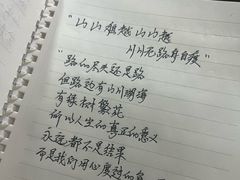 "山山相越山山越
川川无路舟自渡"
"路的尽头还是路
但路边有山川湖海
有绿树繁花
所以人生的真正的意义
永远都不是结果
而是我们用心度过的每